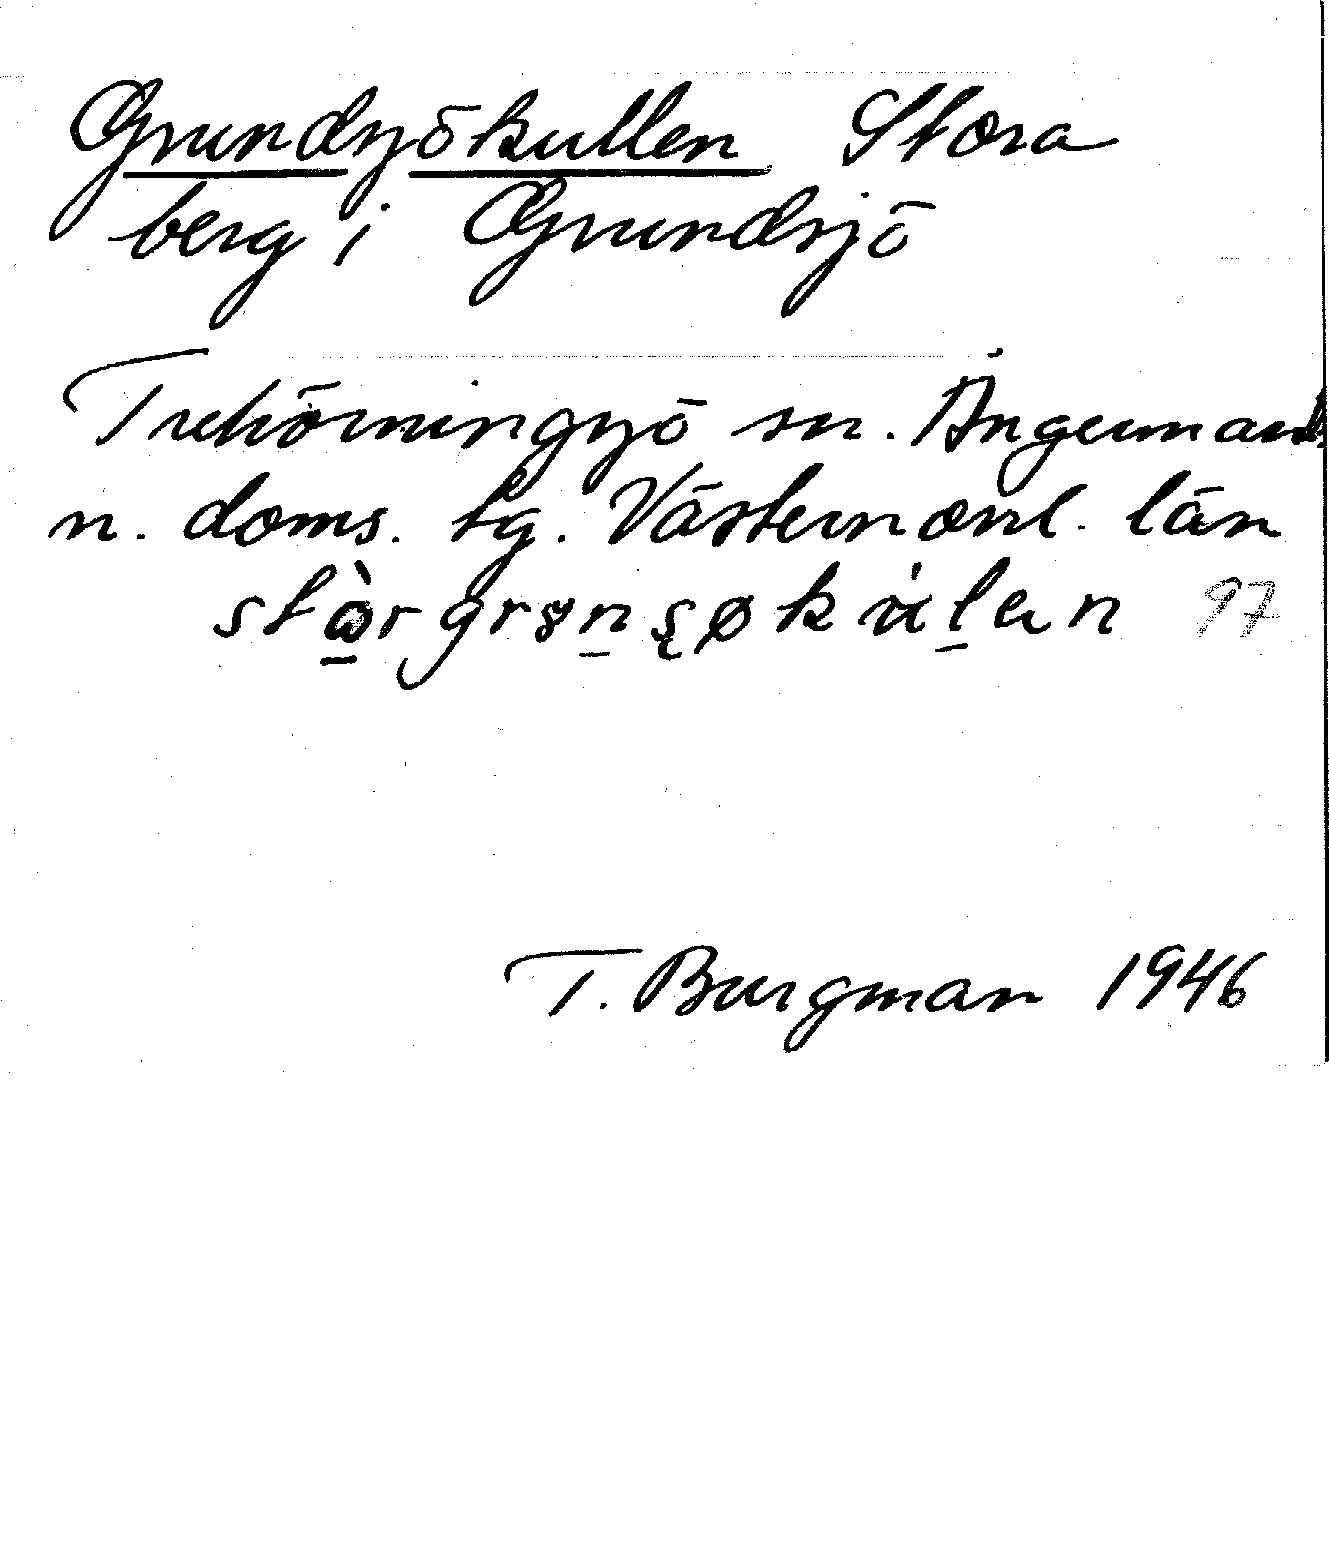 Grundsjökullen Stora
berg i Grundsjö
Trehörningsjö sn. Ångermanl.
n. doms. tg. Västernorrl. län
97
T. Burgman 1946